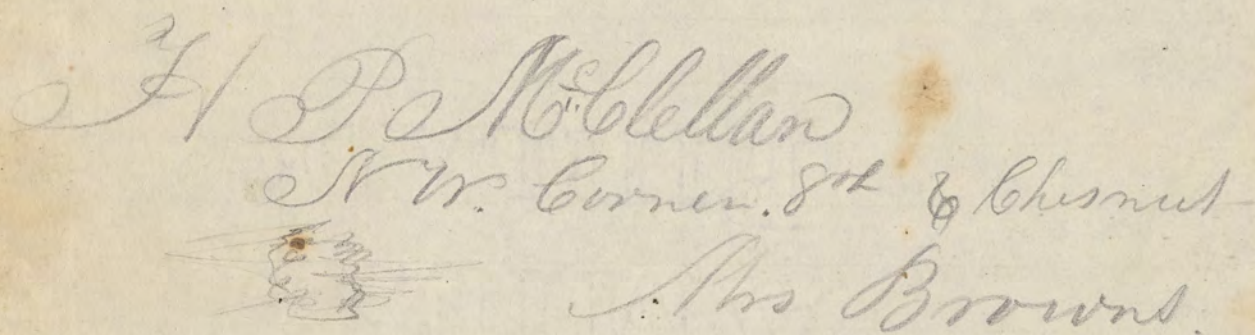 H P McClellan
N W. Corner. 8th & Chesnut
Mrs Browns.